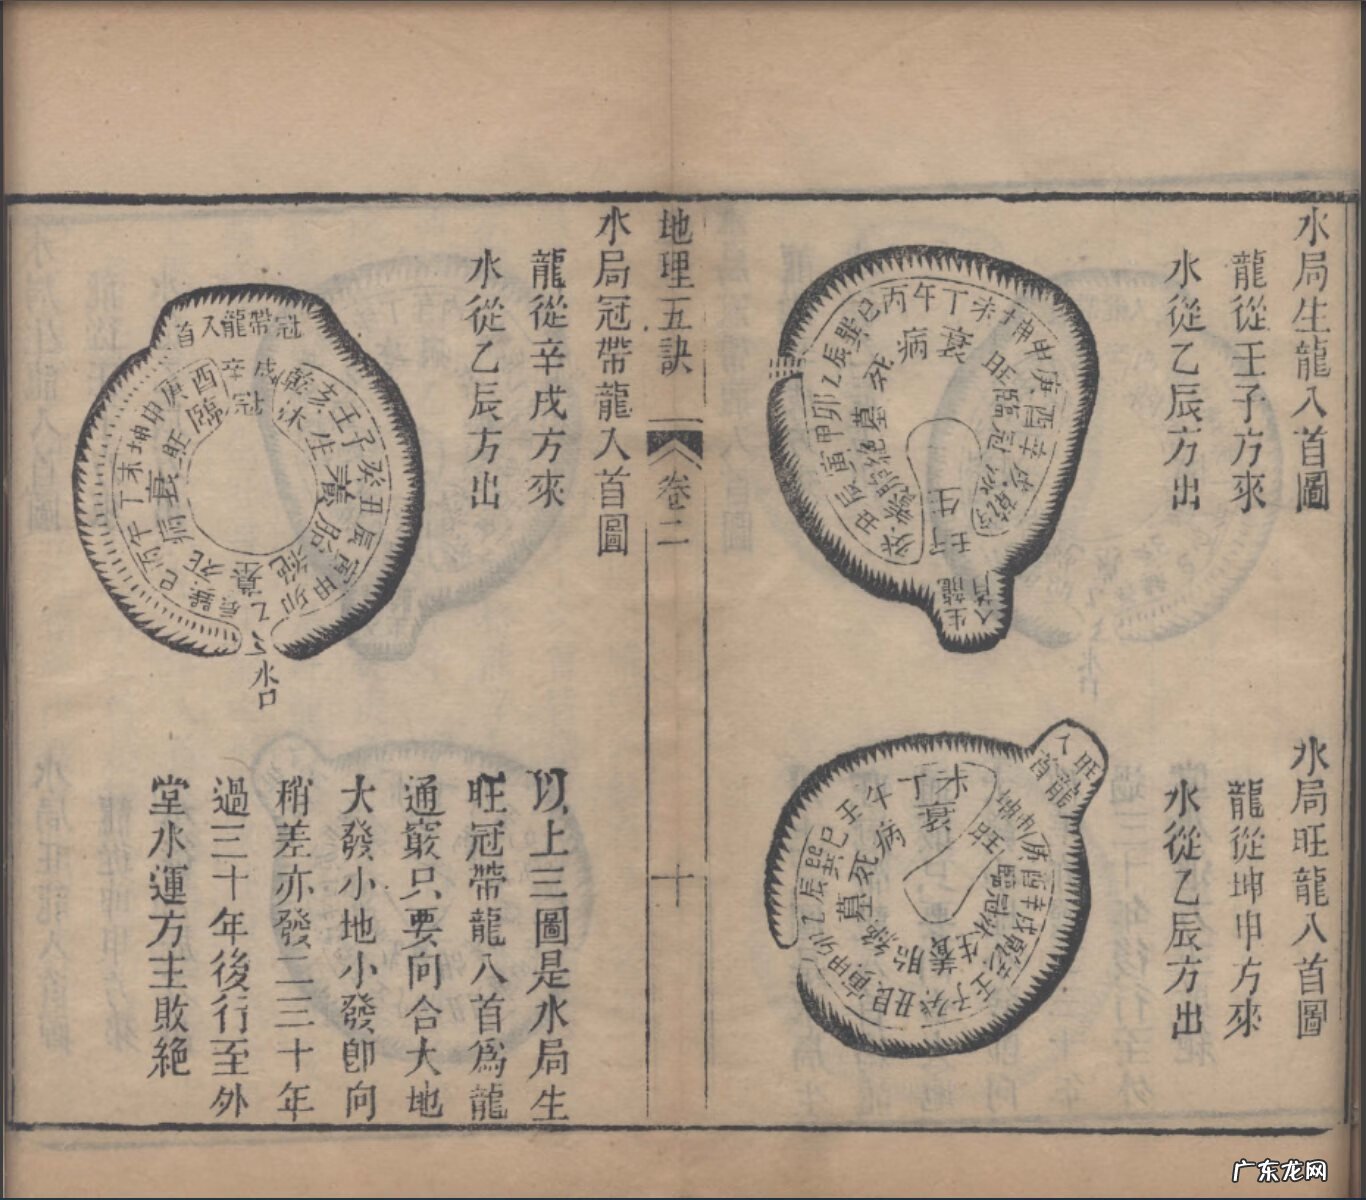 水局生龍入首圖
龍從壬子方來
水從乙辰方出
水局旺龍入首圖
龍從坤申方來
水從乙辰方出
巳丙午丁未坤申庚酉辛戌乾
巽辰乙卯甲寅
丑
病衰
死墓絶胎養
旺臨冠沐
生
壬子
生龍
入首
旺龍
入首
未丁
衰
午
病死墓絶胎養生沐冠臨旺
巳巽辰乙卯甲寅艮丑癸子壬
乾戌辛酉庚申坤
地理五訣
卷二
十
水局冠帶龍入首圖
龍從辛戌方來
水從乙辰方出
冠帶龍入首
戌辛
冠
乾亥壬子癸丑
寅甲卯乙辰巽巳丙午丁未坤申庚酉
沐生養胎絶墓死病衰旺臨
水口
以上三圖是水局生
旺冠帶龍入首為龍
通竅只要向合大地
大發小地小發卽向
稍差亦發二三十年
過三十年後行至外
堂水運方主敗絶
广东龙网